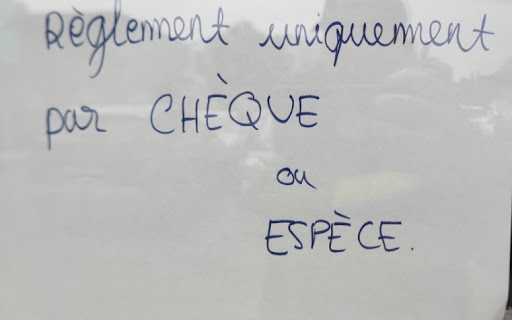 Règlement uniquement
par CHÈQUE
ou
ESPÈCE.